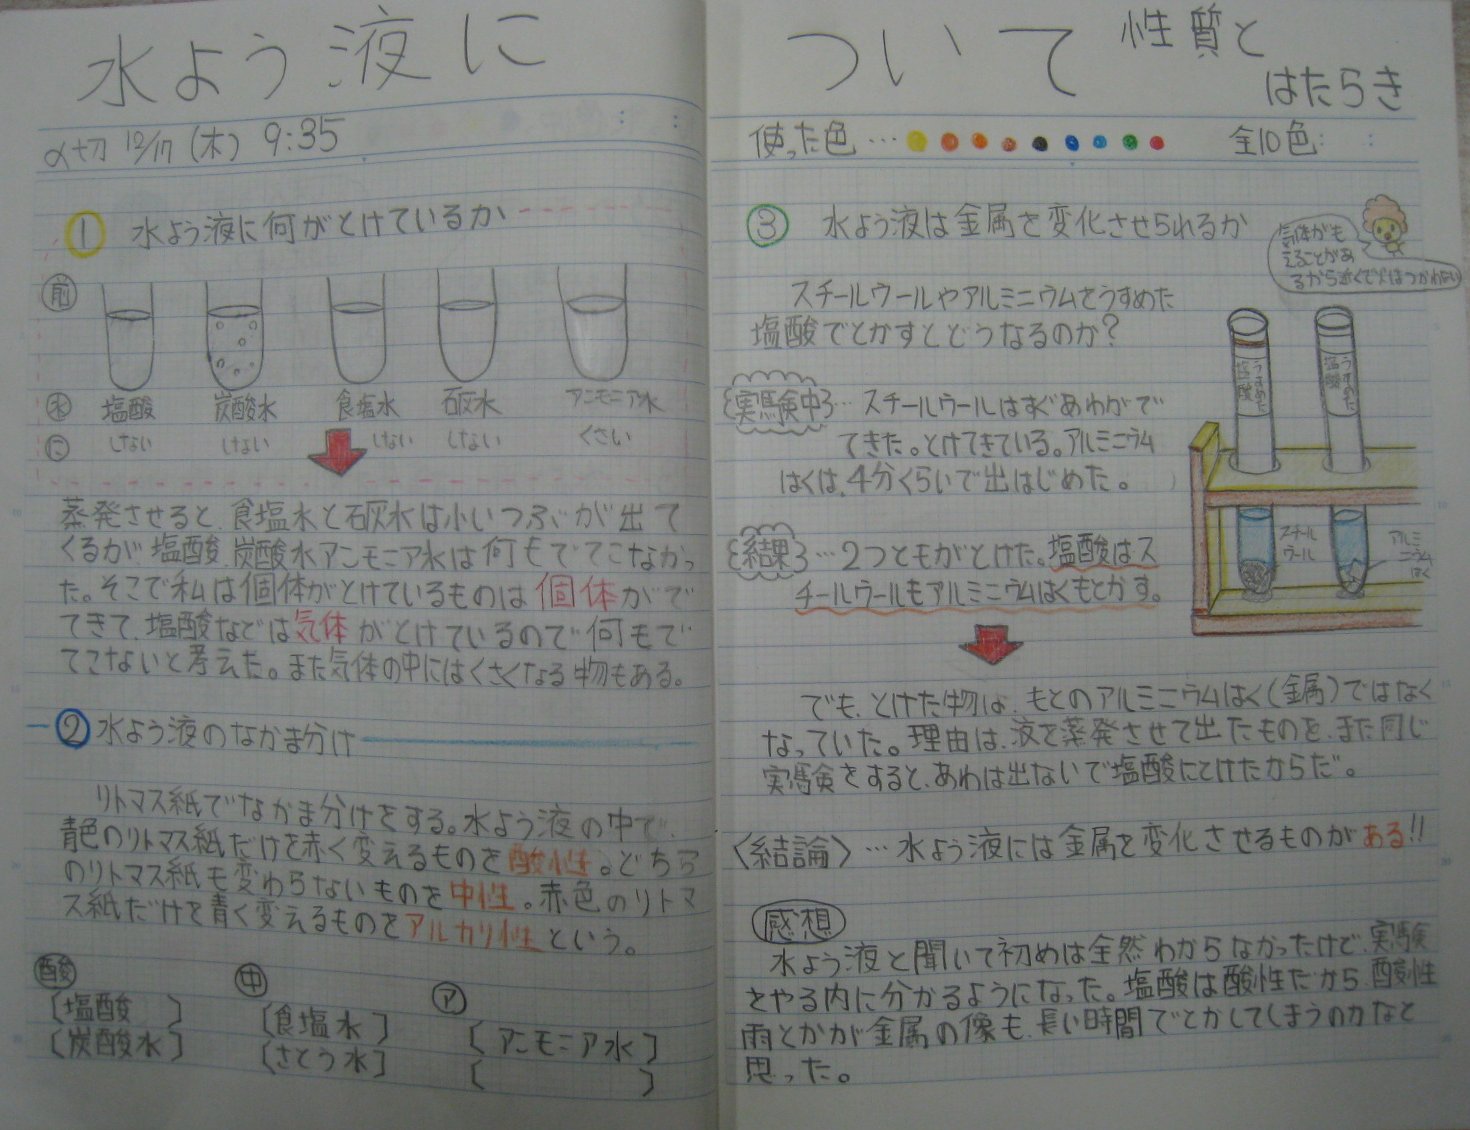 水よう液に
ついて
性質と
はたらき
〆切 12/17 (木) 9:35
使った色…
全10色
① 水よう液に何がとけているか
前
水 塩酸 炭酸水 食塩水 石灰水 アンモニア水
しない しない しない しない くさい
蒸発させると、食塩水と石灰水は小いつぶが出て
くるが、塩酸、炭酸水アンモニア水は何もでてこなかっ
た。そこで私は個体がとけているものは個体がで
てきて、塩酸などは気体がとけているので何もで
てこないと考えた。また気体の中にはくさくなる物もある。
② 水よう液のなかま分け
リトマス紙でなかま分けをする。水よう液の中で、
青色のリトマス紙だけを赤く変えるものを酸性。どちら
のリトマス紙も変わらないものを中性。赤色のリトマ
ス紙だけを青く変えるものをアルカリ性という。
酸 中 ア
〔塩酸 〕
〔炭酸水〕
〔食塩水〕
〔さとう水〕
〔アンモニア水〕
〔 〕
③ 水よう液は金属を変化させられるか
気体がも
えることがあ
るから近くで火はつかわない
スチールウールやアルミニウムをうすめた
塩酸でとかすとどうなるのか?
実験中… スチールウールはすぐあわがで
てきた。とけてきている。アルミニウム
はくは、4分くらいで出はじめた。
結果…2つともがとけた。塩酸はス
チールウールもアルミニウムはくもとかす。
うすめた
塩酸
うすめた
塩酸
スチール
ウール
アルミ
ニウム
はく
でも、とけた物は、もとのアルミニウムはく(金属)ではなく
なっていた。理由は、液を蒸発させて出たものを、また同じ
実験をすると、あわは出ないで塩酸にとけたからだ。
〈結論〉…水よう液には金属を変化させるものがある!!
感想
水よう液と聞いて初めは全然わからなかったけど、実験
をやる内に分かるようになった。塩酸は酸性だから、酸性
雨とかが金属の像も、長い時間でとかしてしまうのかなと
思った。